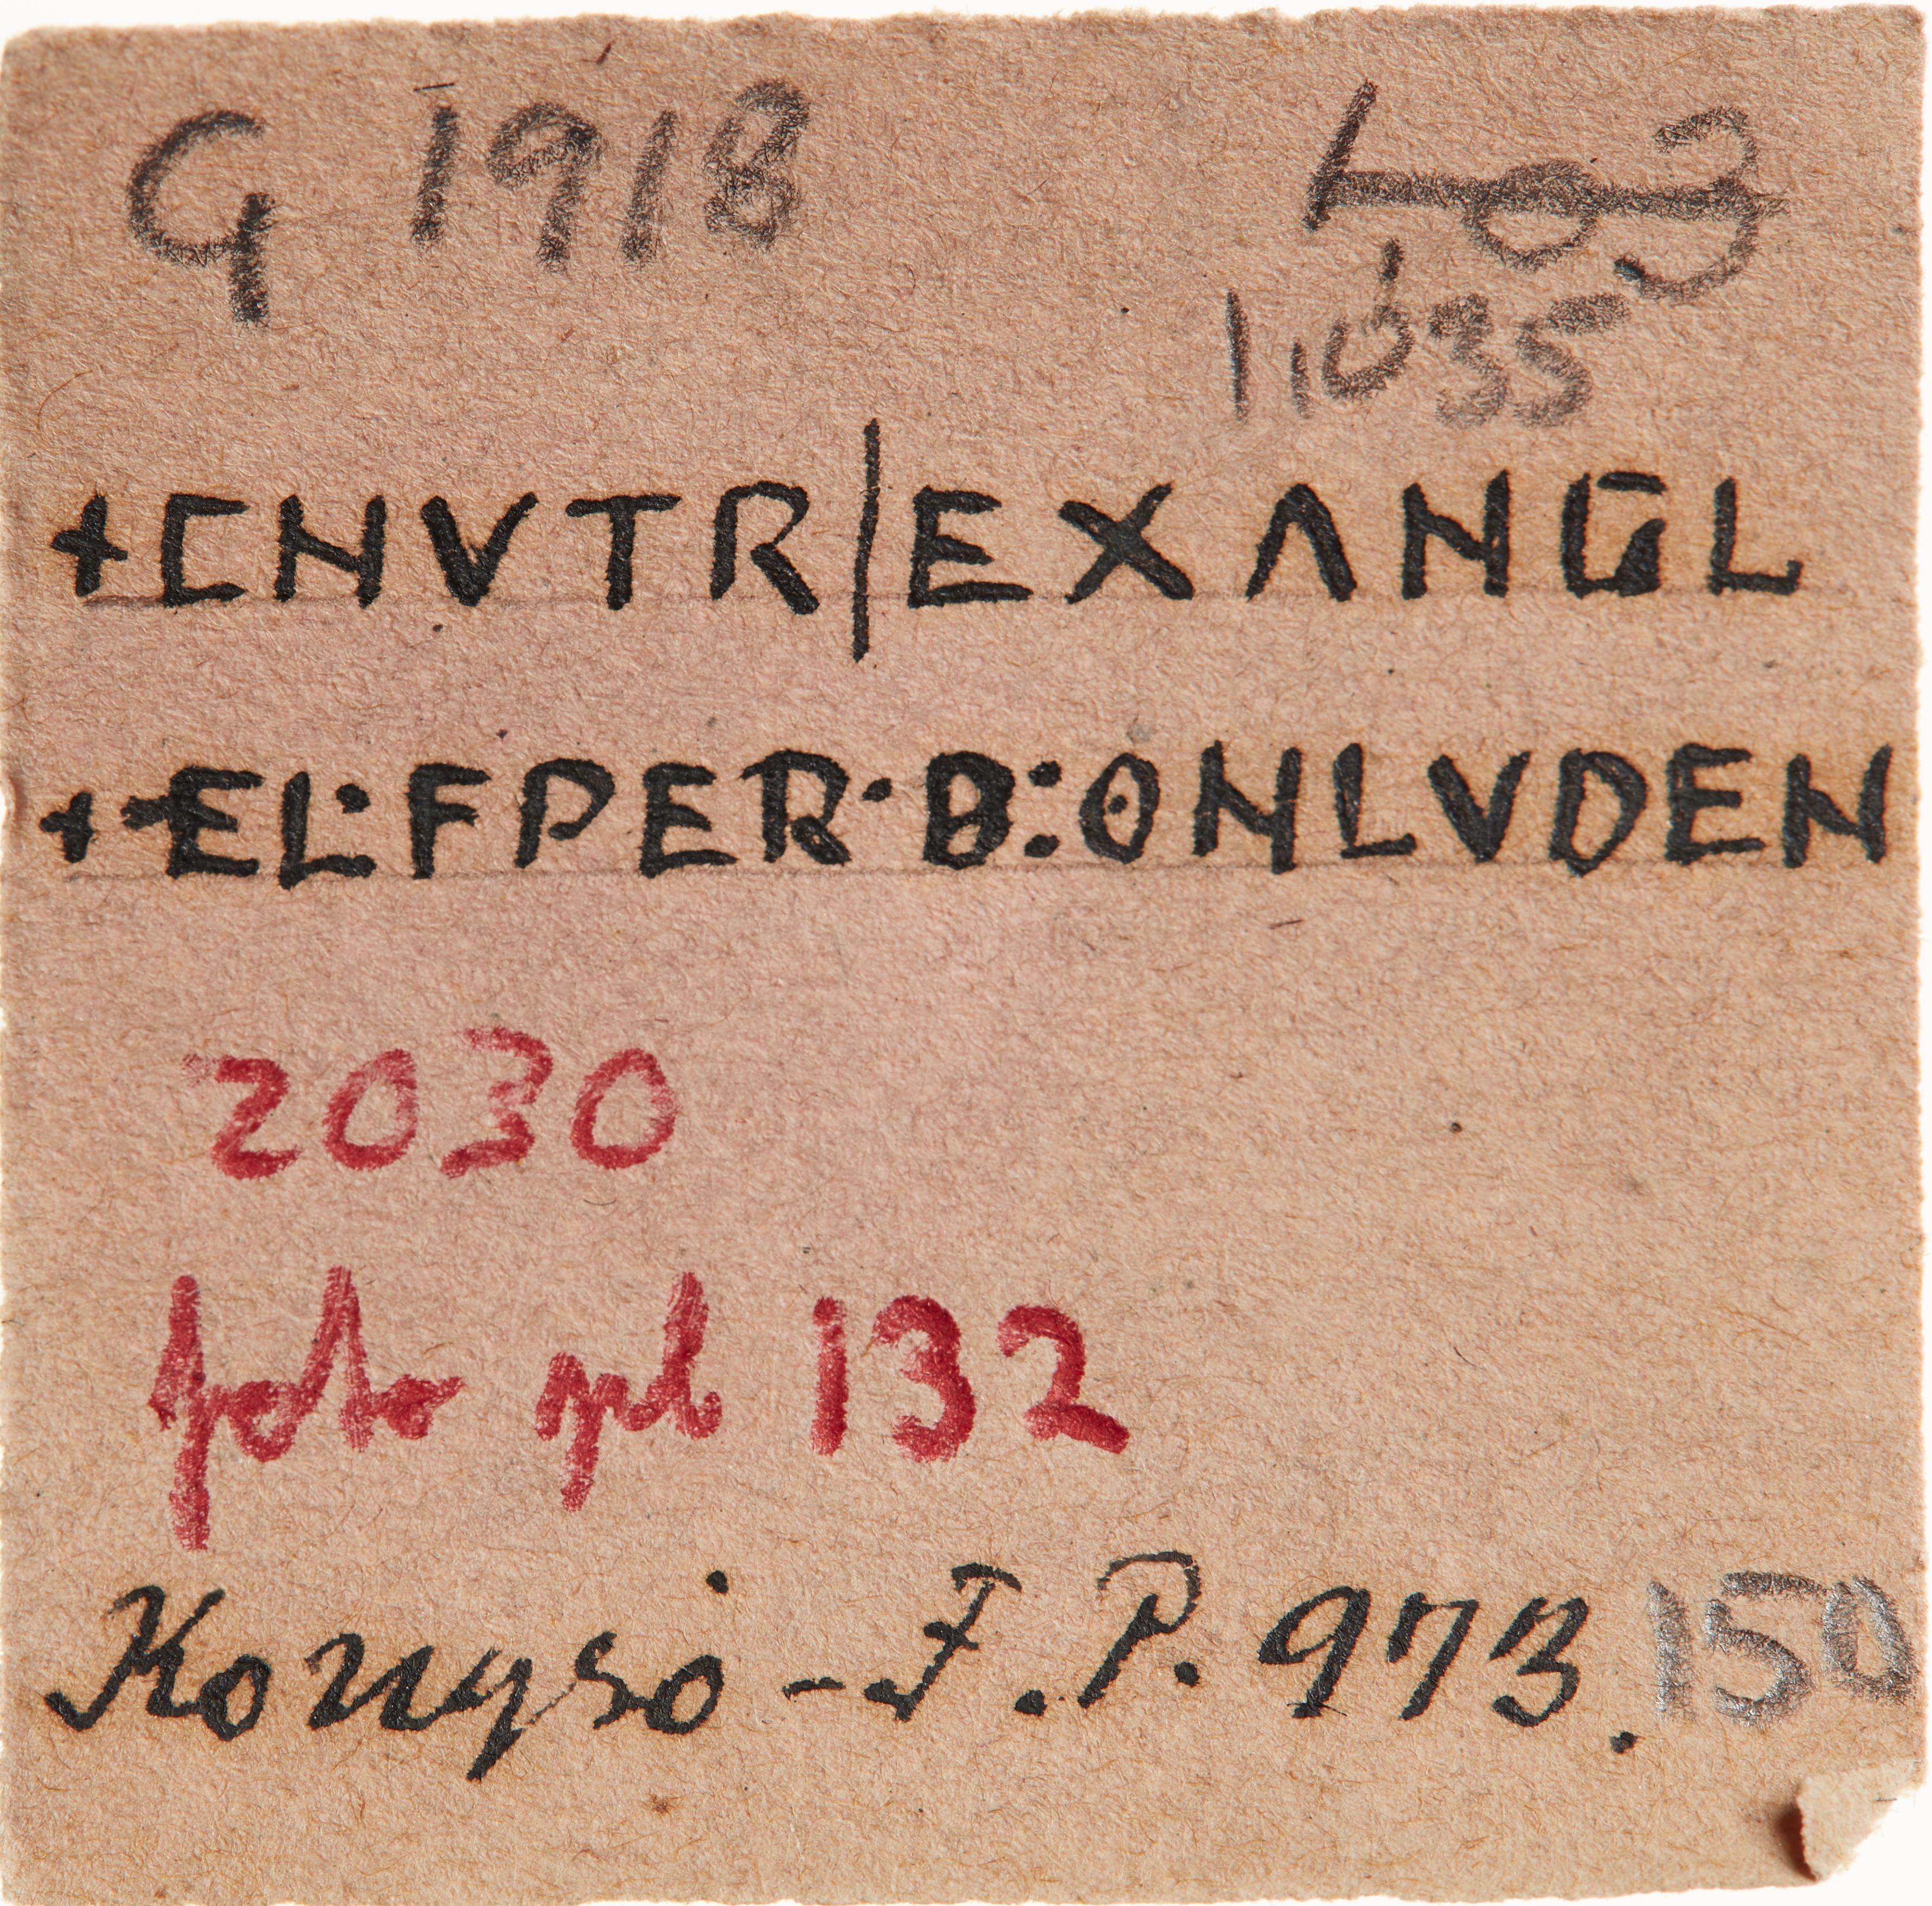 G 1918 403
1,035
+CNVTR/EXΛNGL
+-EL:FPER·B:ONLVDEN
2030
foto gb 132
Konysö-F.P.973. 150